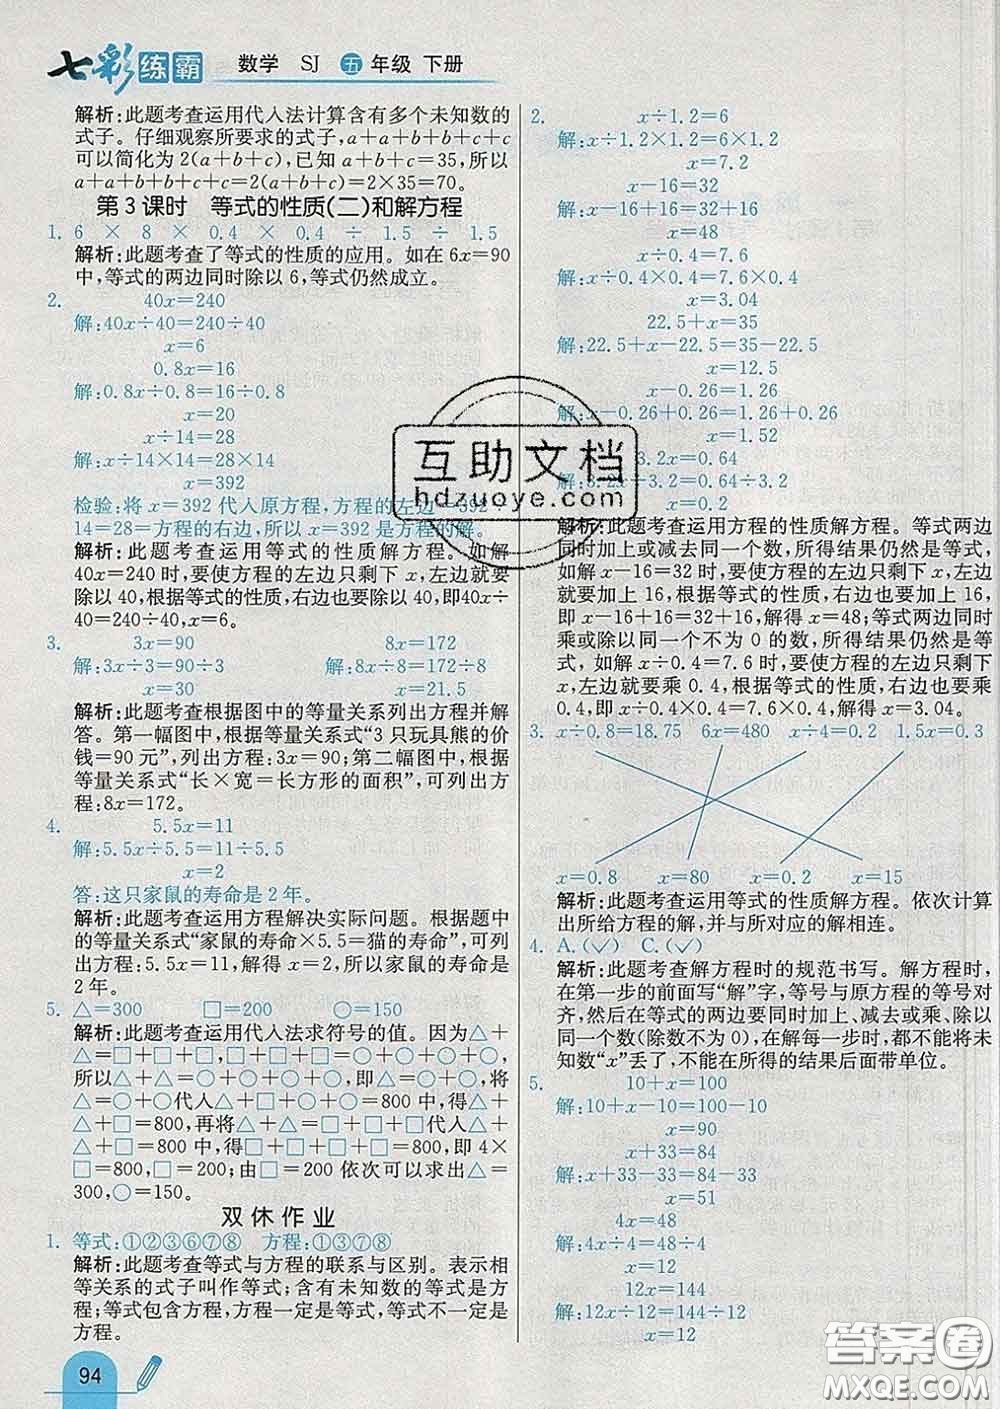 七彩练霸 数学 SJ 五年级 下册
解析:此题考查运用代入法计算含有多个未知数的
式子。仔细观察所要求的式子,a+a+b+b+c+c
可以简化为2(a+b+c),已知a+b+c=35,所以
a+a+b+b+c+c=2(a+b+c)=2×35=70。
第3课时 等式的性质(二)和解方程
1. 6 × 8 × 0.4 × 0.4 ÷ 1.5 ÷ 1.5
解析:此题考查了等式的性质的应用。如在6x=90
中,等式的两边同时除以6,等式仍然成立。
2. 40x=240
解:40x÷40=240÷40
x=6
0.8x=16
解:0.8x÷0.8=16÷0.8
x=20
x÷14=28
解:x÷14×14=28×14
x=392
检验:将x=392代入原方程,方程的左边=392÷
14=28=方程的右边,所以x=392是方程的解。
解析:此题考查运用等式的性质解方程。如解
40x=240时,要使方程的左边只剩下x,左边就要
除以40,根据等式的性质,右边也要除以40,即40x÷
40=240÷40,x=6。
3. 3x=90 8x=172
解:3x÷3=90÷3 解:8x÷8=172÷8
x=30 x=21.5
解析:此题考查根据图中的等量关系列出方程并解
答。第一幅图中,根据等量关系式“3只玩具熊的价
钱=90元”,列出方程:3x=90;第二幅图中,根据
等量关系式“长×宽=长方形的面积”,可列出方
程:8x=172。
4. 5.5x=11
解:5.5x÷5.5=11÷5.5
x=2
答:这只家鼠的寿命是2年。
解析:此题考查运用方程解决实际问题。根据题中
的等量关系式“家鼠的寿命×5.5=猫的寿命”,可列
出方程:5.5x=11,解得x=2,所以家鼠的寿命是
2年。
5. △=300 □=200 ○=150
解析:此题考查运用代入法求符号的值。因为△+
△=□+□+□,□+□+□=○+○+○+○,
所以△+△=○+○+○+○,即△=○+○,将
△=○+○代入△+□+○+○=800中,得△+
□+△=800,再将△+△=□+□+□代入△+
△+□=800中,得□+□+□+□=800,即4×
□=800,□=200;由□=200依次可以求出△=
300,○=150。
双休作业
1. 等式:①②③⑥⑦⑧ 方程:①③⑦⑧
解析:此题考查等式与方程的联系与区别。表示相
等关系的式子叫作等式;含有未知数的等式是方
程;等式包含方程,方程一定是等式,等式不一定是
方程。
94
2. x÷1.2=6
解:x÷1.2×1.2=6×1.2
x=7.2
x-16=32
解:x-16+16=32+16
x=48
x÷0.4=7.6
解:x÷0.4×0.4=7.6×0.4
x=3.04
22.5+x=35
解:22.5+x-22.5=35-22.5
x=12.5
x-0.26=1.26
解:x-0.26+0.26=1.26+0.26
x=1.52
3.2x=0.64
解:3.2x÷3.2=0.64÷3.2
x=0.2
解析:此题考查运用方程的性质解方程。等式两边
同时加上或减去同一个数,所得结果仍然是等式,
如解x-16=32时,要使方程的左边只剩下x,左边
就要加上16,根据等式的性质,右边也要加上16,
即x-16+16=32+16,解得x=48;等式两边同时
乘或除以同一个不为0的数,所得结果仍然是等
式,如解x÷0.4=7.6时,要使方程的左边只剩下
x,左边就要乘0.4,根据等式的性质,右边也要乘
0.4,即x÷0.4×0.4=7.6×0.4,解得x=3.04。
3. x÷0.8=18.75 6x=480 x÷4=0.2 1.5x=0.3
x=0.8 x=80 x=0.2 x=15
解析:此题考查运用等式的性质解方程。依次计算
出所给方程的解,并与所对应的解相连。
4. A.(✓) C.(✓)
解析:此题考查解方程时的规范书写。解方程时,
在第一步的前面写“解”字,等号与原方程的等号对
齐,然后在等式的两边要同时加上、减去或乘、除以
同一个数(除数不为0),在解每一步时,都不能将未
知数“x”丢了,不能在所得的结果后面带单位。
5. 10+x=100
解:10+x-10=100-10
x=90
x+33=84
解:x+33-33=84-33
x=51
4x=48
解:4x÷4=48÷4
x=12
12x=144
解:12x÷12=144÷12
x=12
互助文档
hdzuoye.com
答案圈
MXQE.COM